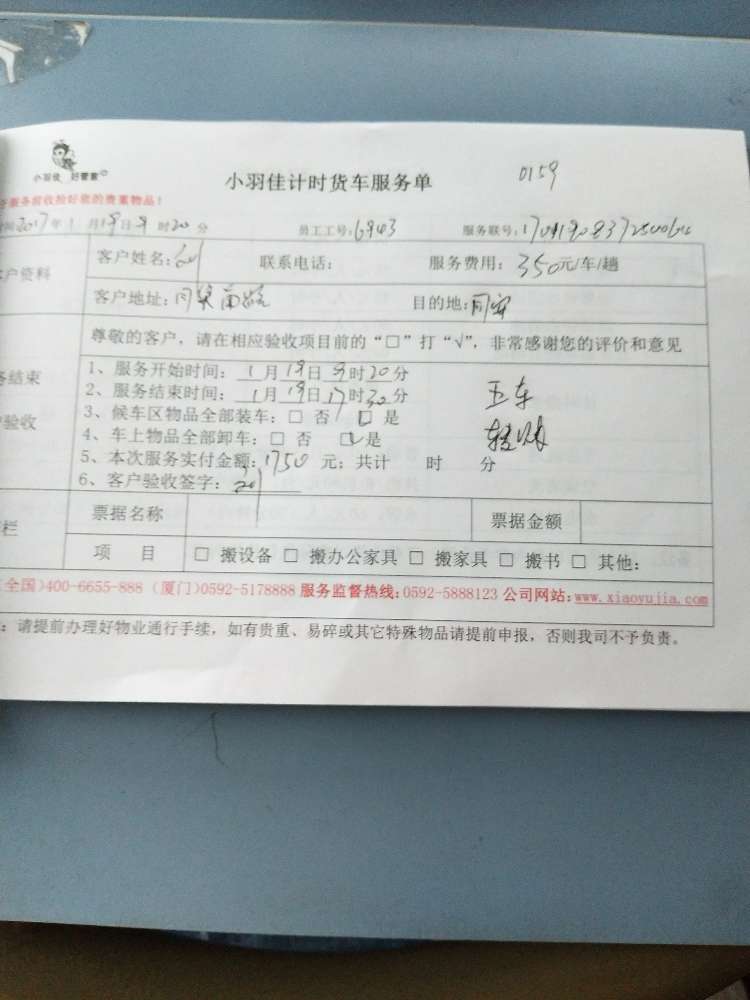 小羽佳 好管家
小羽佳计时货车服务单 0159
服务前收捡好您的贵重物品！
2017年1月19日9时20分 员工工号：6943 服务联号：
户资料 客户姓名： 联系电话： 服务费用：350元/车/趟
客户地址： 目的地：同安
尊敬的客户，请在相应验收项目前的“□”打“√”，非常感谢您的评价和意见
务结束 1、服务开始时间：1月19日9时20分
2、服务结束时间：1月19日17时30分 五车
验收 3、候车区物品全部装车：□ 否 □ 是
4、车上物品全部卸车：□ 否 □ 是
5、本次服务实付金额：1750 元；共计 时 分
6、客户验收签字：
栏 票据名称 票据金额
项 目 □ 搬设备 □ 搬办公家具 □ 搬家具 □ 搬书 □ 其他：
(全国)400-6655-888 (厦门)0592-5178888 服务监督热线:0592-5888123 公司网站:www.xiaoyujia.com
：请提前办理好物业通行手续，如有贵重、易碎或其它特殊物品请提前申报，否则我司不予负责。